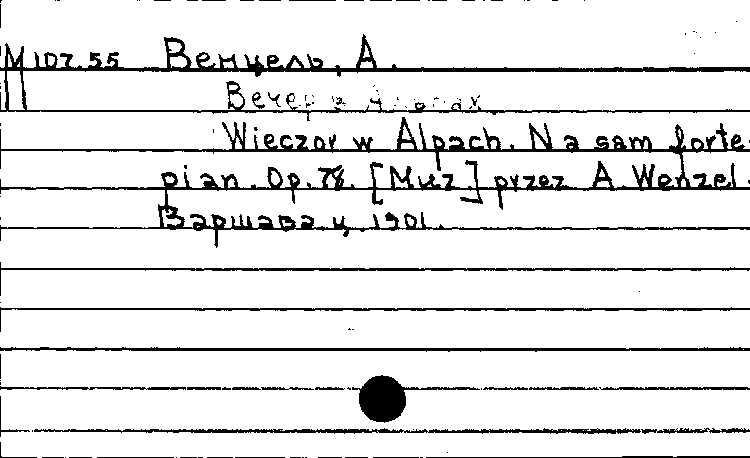 М 107.55 Венцель, А.
Вечер в Альпах.
Wieczor w Alpach. Na sam forte-
pian. Op. 78. [Muz.] przez A. Wenzel.
Варшава. ц. 1901.